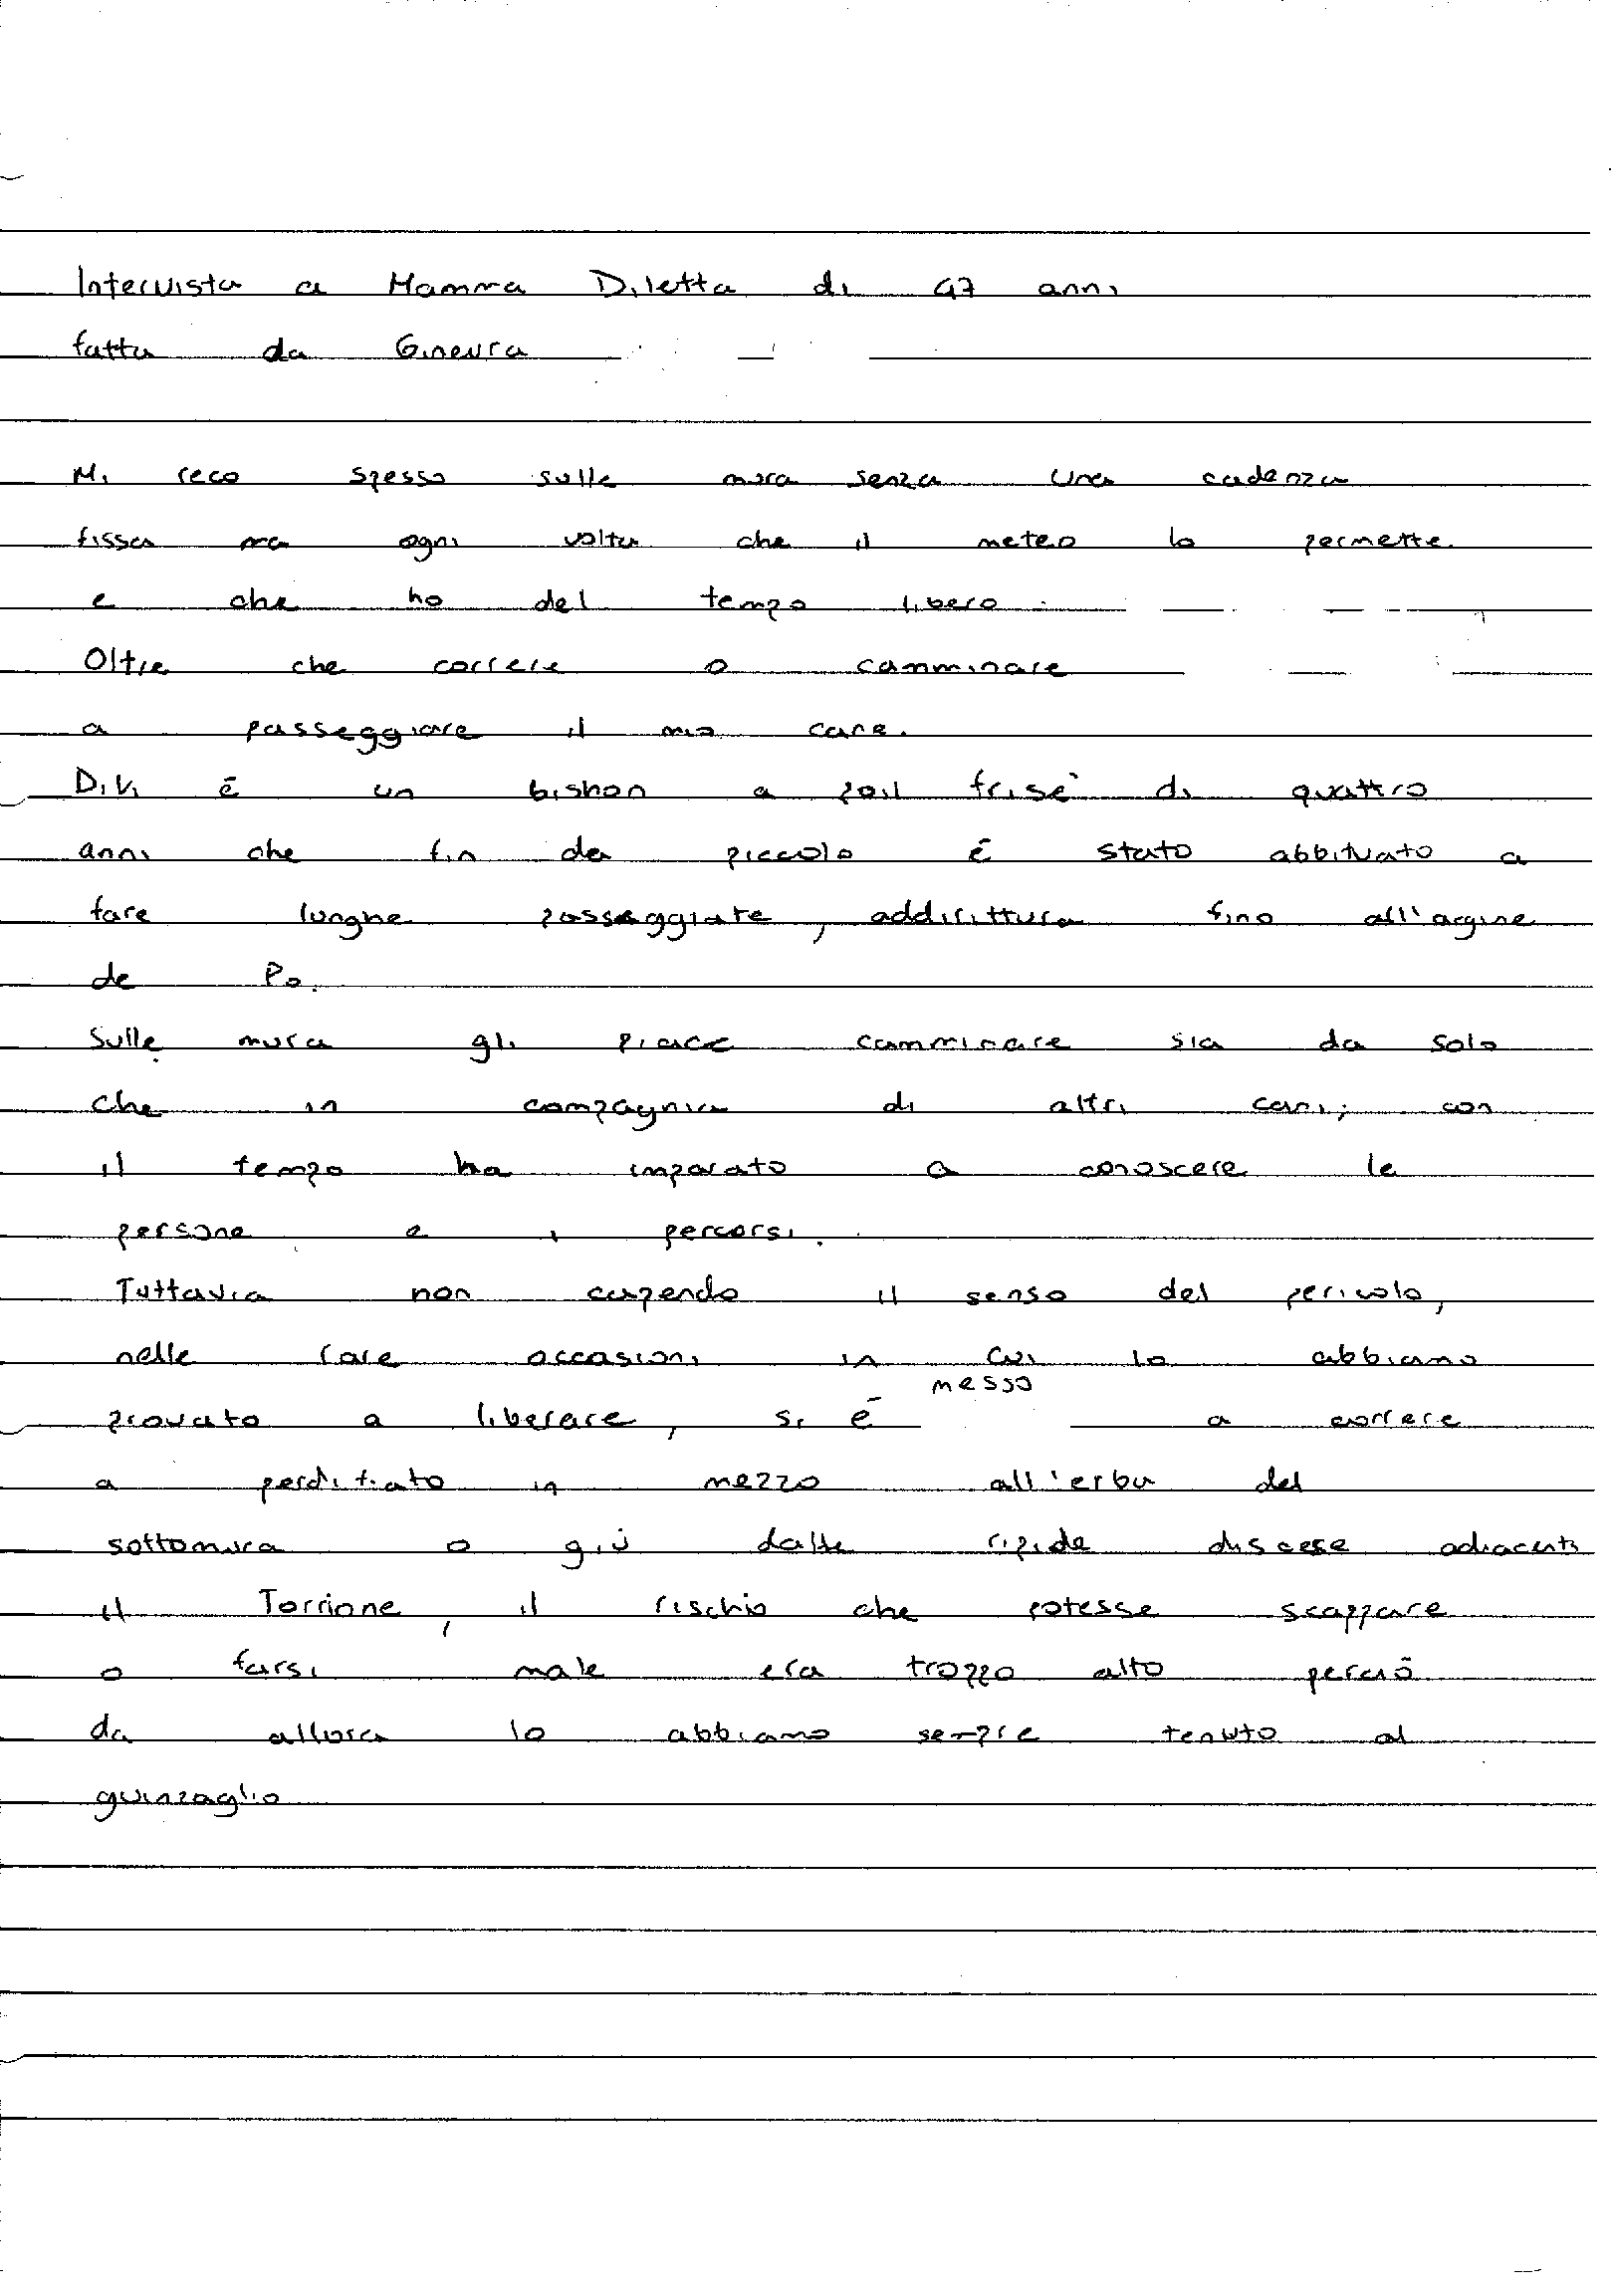 Intervista a Mamma Diletta di 47 anni
fatta da Ginevra
Mi reco spesso sulle mura senza una cadenza
fissa ma ogni volta che il meteo lo permette
e che ho del tempo libero.
Oltre che correre o camminare
a passeggiare il mio cane.
Divi è un bishon a poil frisé di quattro
anni che fin da piccolo è stato abbituato a
fare lunghe passeggiate, addirittura fino all'argine
de Po.
Sulle mura gli piace camminare sia da solo
che in compagnia di altri cani; con
il tempo ha imparato a conoscere le
persone e i percorsi.
Tuttavia non capendo il senso del pericolo,
nelle rare occasioni in cui lo abbiamo
provato a liberare, si è messo a correre
a perdifiato in mezzo all'erba del
sottomura o giù dalle ripide discese adiacenti
il Torrione, il rischio che potesse scappare
o farsi male era troppo alto perciò
da allora lo abbiamo sempre tenuto al
guinzaglio